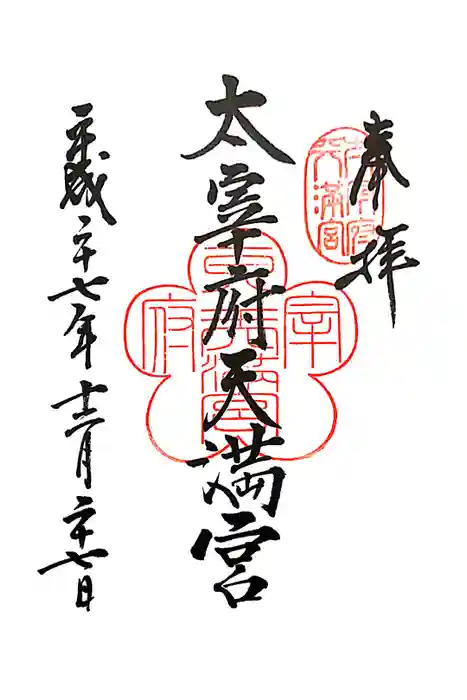 奉拝
太宰府天満宮
平成二十七年十二月二十七日